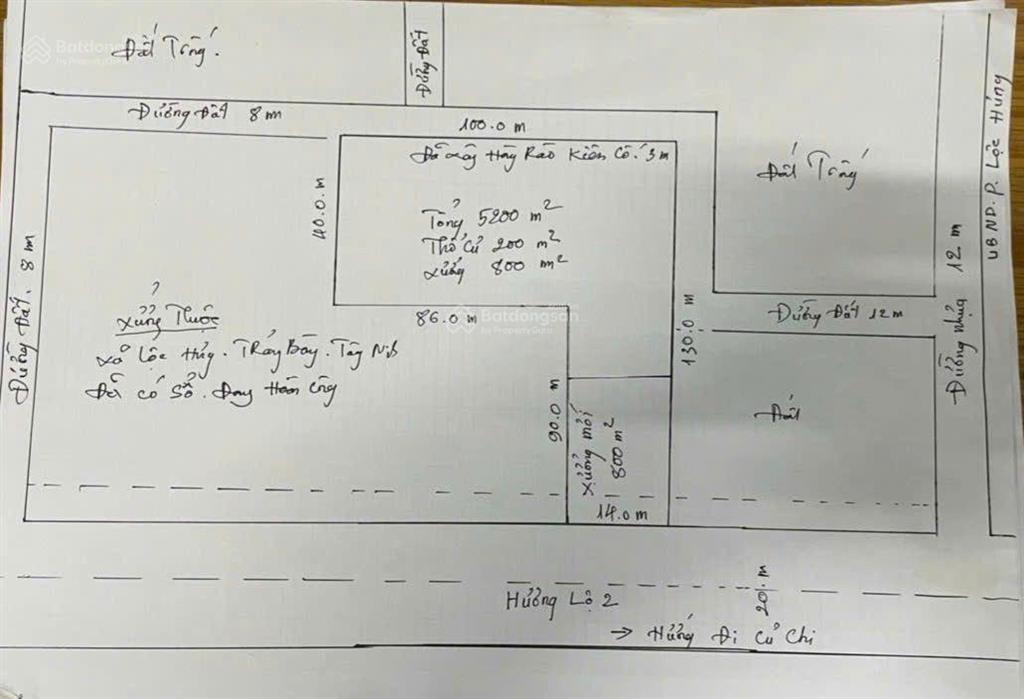 Batdongsan
by PropertyGuru
Đất Trống.
Đường Đất
Đường Đất 8 m
100.0 m
Đã xây Hàng Rào Kiên Cố. 3 m
40.0 m
Tổng 5200 m²
Thổ Cư 200 m²
Xưởng 800 m²
86.0 m
Batdongsan
by PropertyGuru
Đường Đất. 8 m
Xưởng Thuộc
Lộc Hưng. Trảng Bàng. Tây
Đất có Sổ. Đang Hoàn Công
90.0 m
Xưởng mới
800 m²
14.0 m
130.0 m
Đất Trống
Đường Đất 12 m
Đất
Đường nhựa 12 m
UBND. P. Lộc Hưng
Hương Lộ 2
20. m
→ Hướng Đi Củ Chi